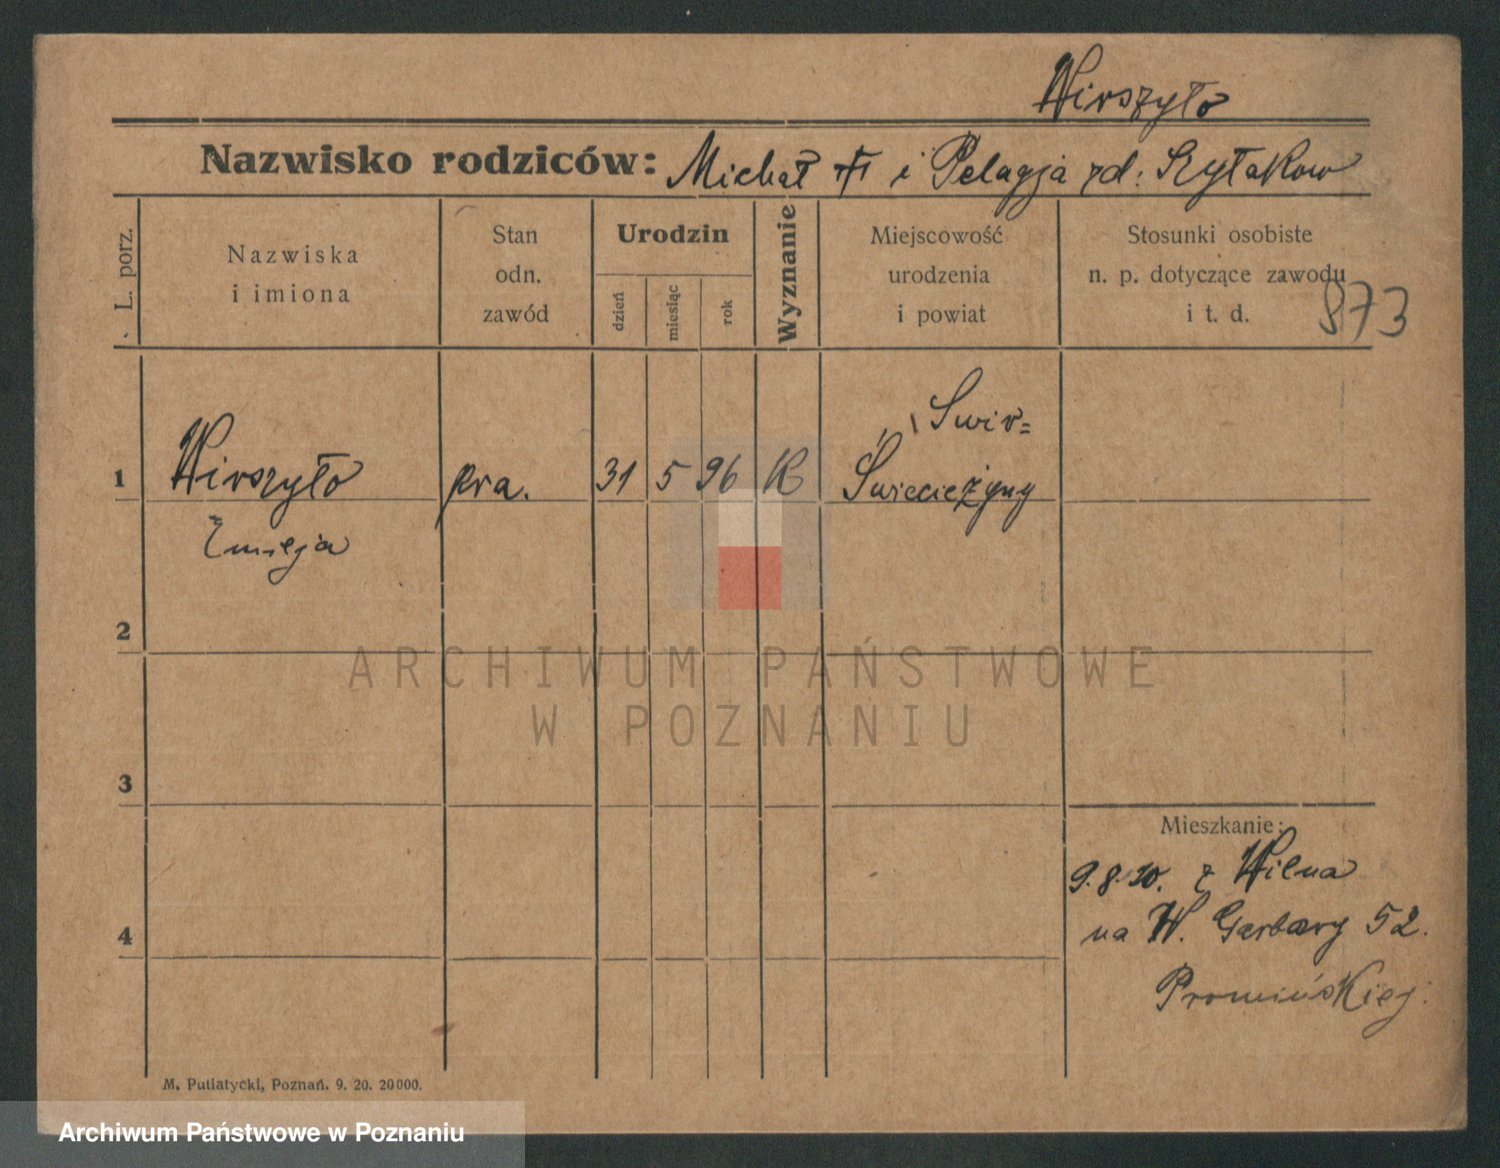 Wirszyło
Nazwisko rodziców: Michał i Pelagja zd: Szyłakow
L. porz.
Nazwiska
i imiona
Stan
odn.
zawód
Urodzin
dzień
miesiąc
rok
Wyznanie
Miejscowość
urodzenia
i powiat
Stosunki osobiste
n. p. dotyczące zawodu
i t. d.
873
Swir=
1 Wirszyło pra. 31 5 96 K
2
3
Mieszkanie:
9.8.20. z Wilna
4
na W. Garbary 52.
Promińskiej
M. Putiatycki, Poznań. 9. 20. 20000.
ARCHIWUM PAŃSTWOWE
W POZNANIU
Archiwum Państwowe w Poznaniu